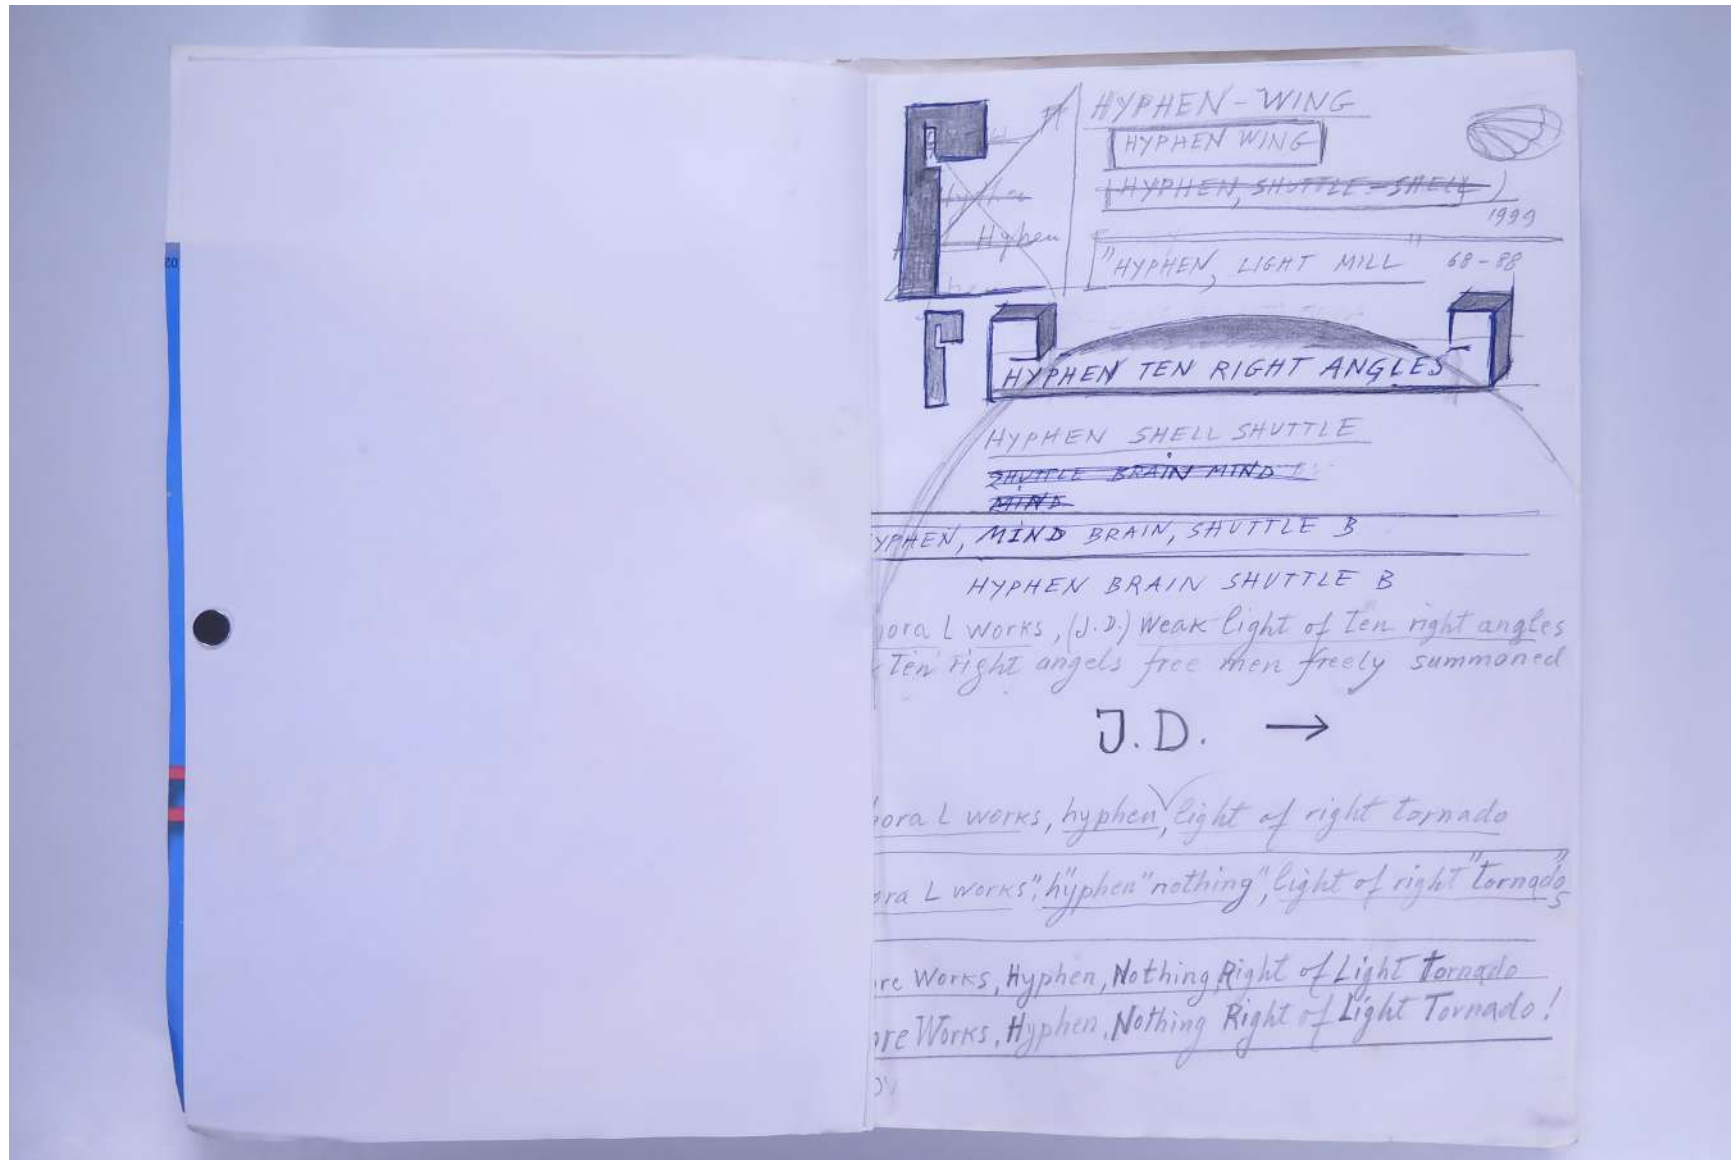 HYPHEN-WING
HYPHEN WING
(HYPHEN, SHUTTLE-SHELL)
1999
Hyphen
"HYPHEN, LIGHT MILL" 68-88
HYPHEN TEN RIGHT ANGLES
HYPHEN SHELL SHUTTLE
SHUTTLE BRAIN MIND
MIND
YPHEN, MIND BRAIN, SHUTTLE B
HYPHEN BRAIN SHUTTLE B
ora L works, (J.D.) Weak light of Ten right angles
Ten right angels free men freely summoned
J.D. →
ora L works, hyphen, light of right tornado
ora L works", "hyphen" nothing", light of right "tornado"s
re Works, Hyphen, Nothing, Right of Light Tornado
ore Works, Hyphen, Nothing Right of Light Tornado!